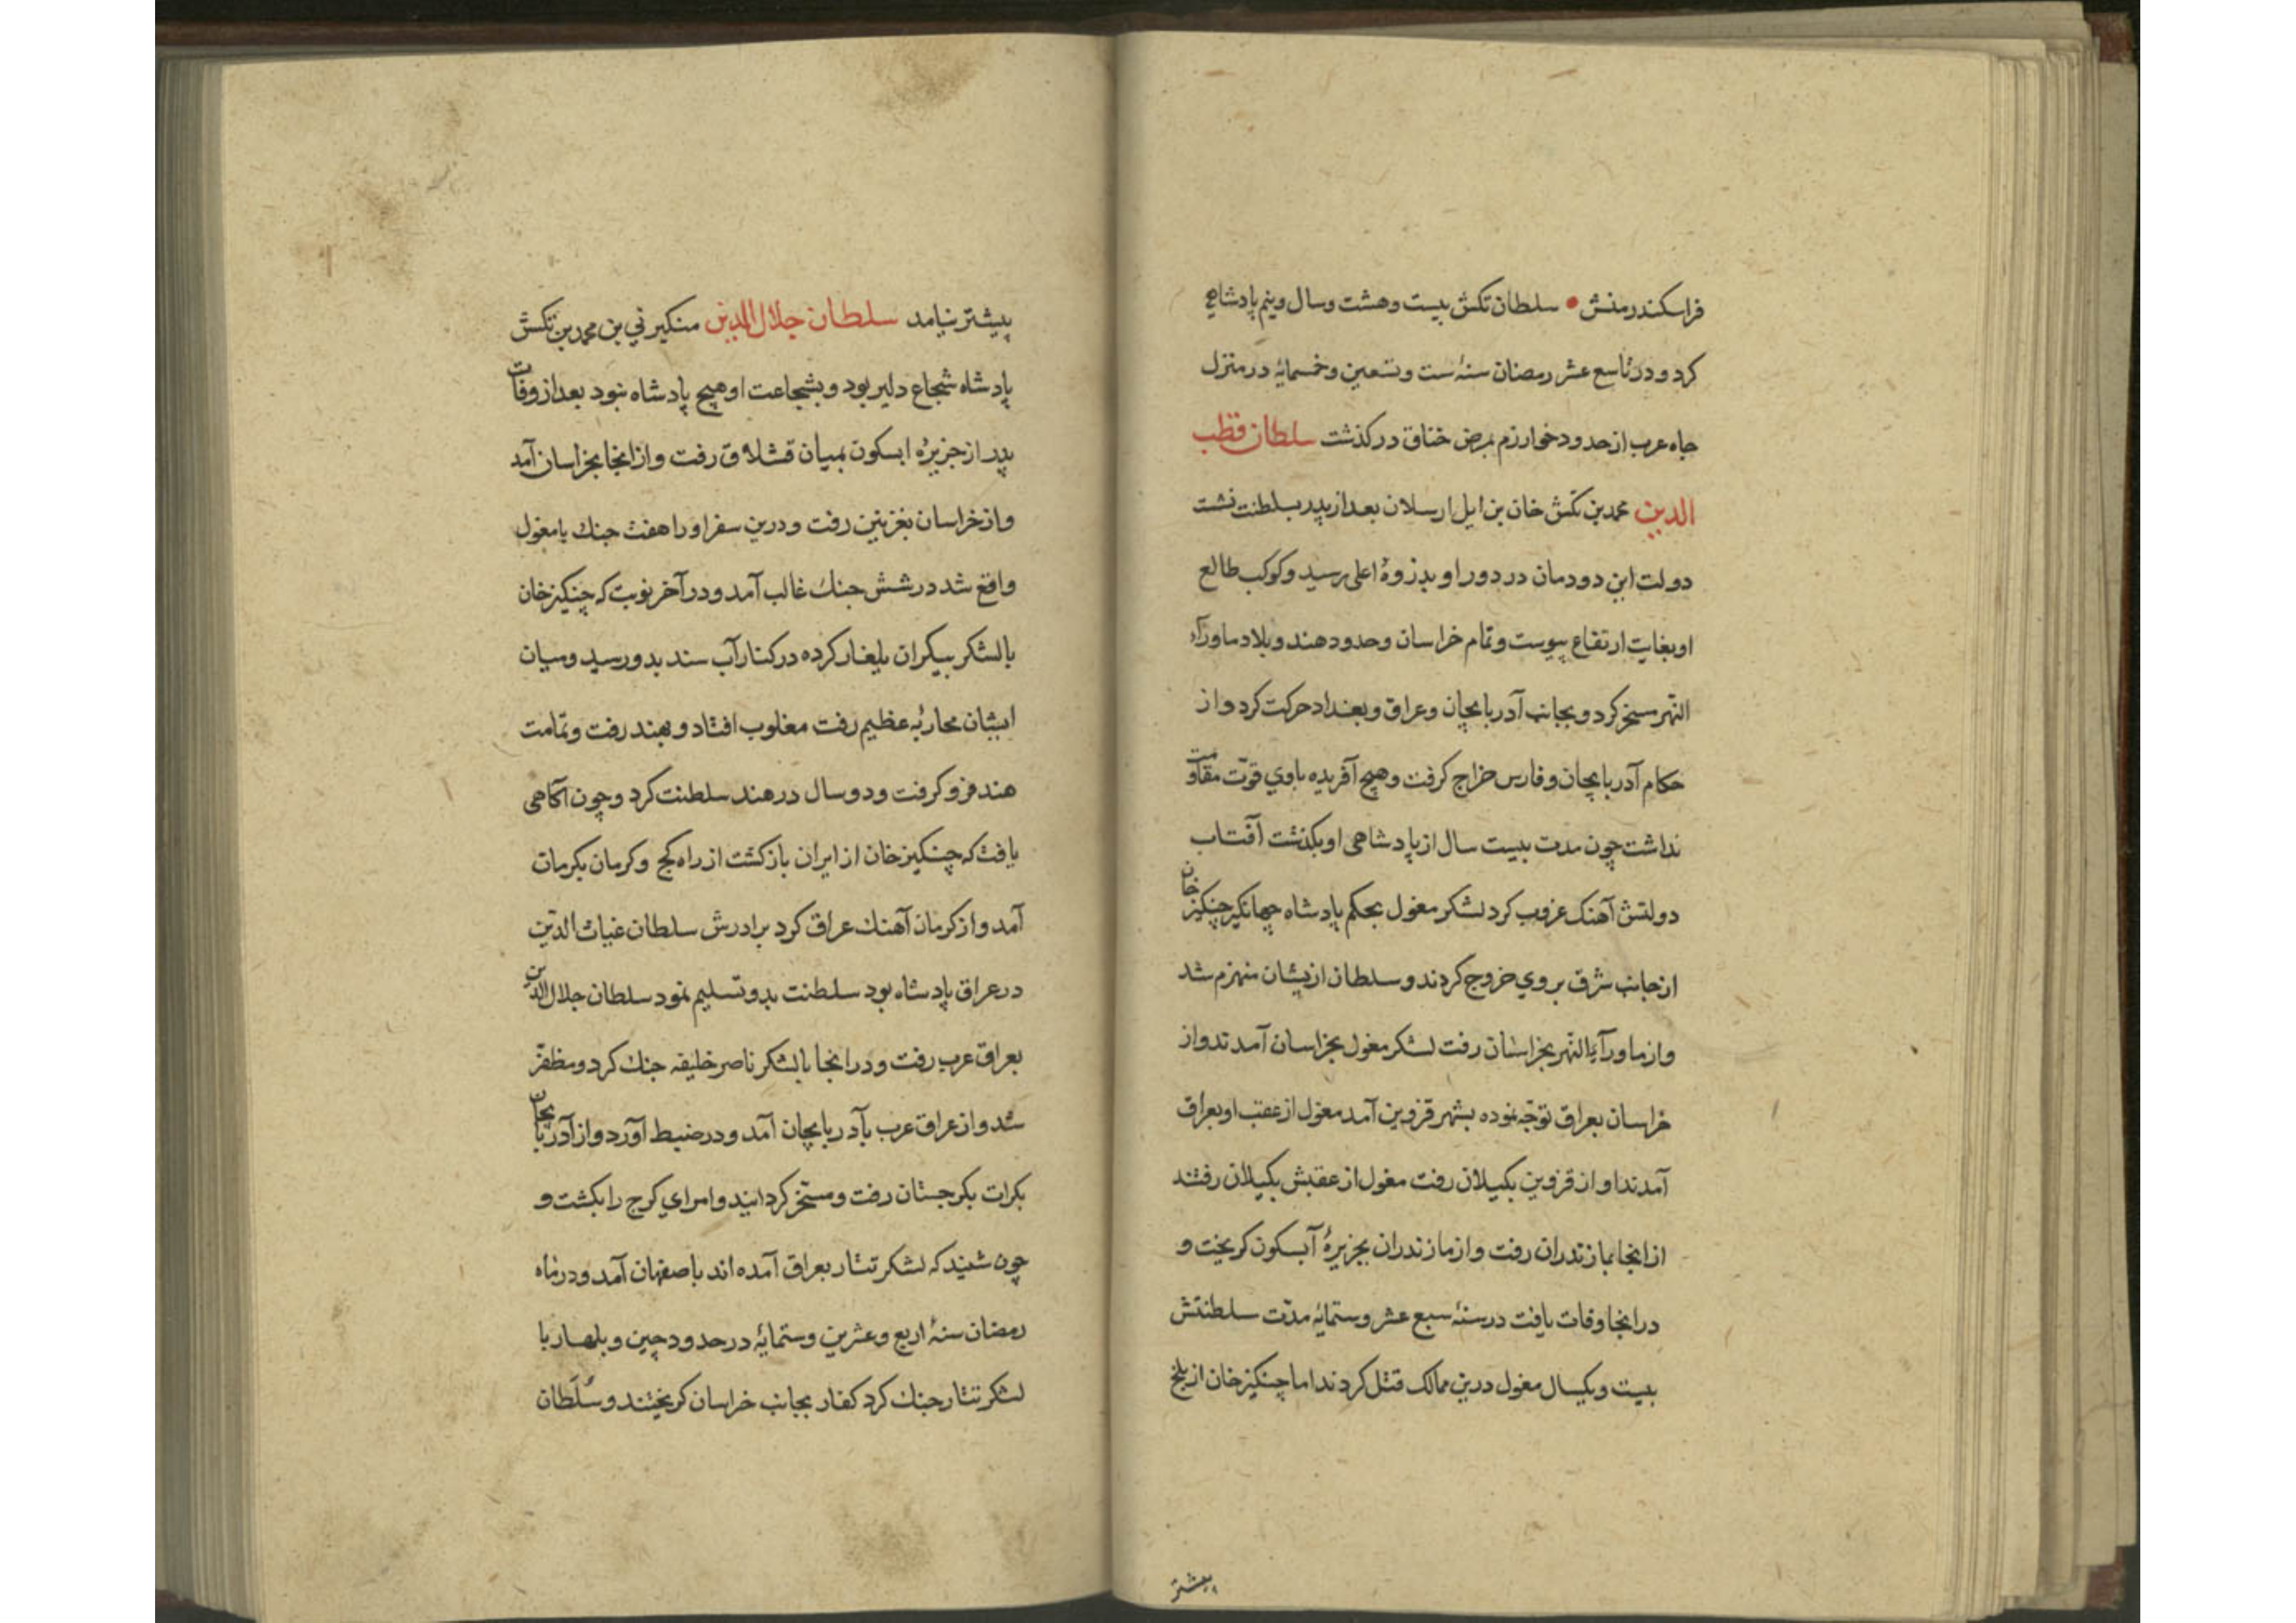 فراسکندرمنش • سلطان تکش بیست وهشت وسال ونیم پادشاهی
کرد ودرتاسع عشر رمضان سنهٔ ست وتسعین وخمسمایهٔ درمنزل
جاه عرب ازحدود خوارزم بمرض خناق درکذشت سلطان قطب
الدین محمدبن تکش خان بن ایل ارسلان بعد از پدر بسلطنت نشت
دولت این دودمان دردور او بدزوهٔ اعلی رسید وکوکب طالع
اوبغایت ارتفاع پیوست وتمام خراسان وحدود هند وبلاد ماورآء
النهر مسخر کرد وبجانب آدربایجان وعراق وبغداد حرکت کرد واز
حکام آدربایجان وفارس خراج کرفت وهیچ آفریده باوي قوّت مقاومت
نداشت چون مدت بیست سال ازپادشاهی اوبکذشت آفتاب
دولتش آهنک غروب کرد لشکر مغول بحکم پادشاه جهانکیر چنکیز خان
ازجانب شرق بروي خروج کردند وسلطان ازیشان منهزم شد
وازماورآء النهر بخراسان رفت لشکر مغول بخراسان آمدند واز
خراسان بعراق توجّه نموده بشهر قزوین آمد مغول ازعقب اوبعراق
آمدند اوازقزوین بکیلان رفت مغول ازعقبش بکیلان رفتند
ازانجا بمازندران رفت وازمازندران بجزیرهٔ آبسکون کریخت و
درانجا وفات یافت درسنهٔ سبع عشر وستمایهٔ مدّت سلطنتش
بیست ویکسال مغول درین ممالک قتل کردند اما چنکیزخان ازبلخ
پیشتر
پیشتر نیامد سلطان جلال الدین منکیرني بن محمدبن تکش
پادشاه شجاع دلیر بود وبشجاعت اوهیچ پادشاه نبود بعدازوفات
پدر ازجزیرهٔ ابسکون بمیان قشلاق رفت وازانجا بخراسان آمد
وازخراسان بغزنین رفت ودرین سفر اورا هفت جنك بامغول
واقع شد درشش جنك غالب آمد ودرآخر نوبت که چنکیزخان
بالشکر بیکران یلیغار کرده درکنار آب سند بدو رسید ومیان
ایشان محاربهٔ عظیم رفت مغلوب افتاد وبهند رفت وتمامت
هند فروکرفت ودوسال درهند سلطنت کرد وچون اکاهی
یافت که چنکیزخان ازایران بازکشت ازراه کج وکرمان بکرمان
آمد وازکرمان آهنك عراق کرد برادرش سلطان غیاث الدّین
درعراق پادشاه بود سلطنت بدو تسلیم نمود سلطان جلال الدین
بعراق عرب رفت ودرانجا بالشکر ناصر خلیفه جنك کرد ومظفّر
شد وازعراق عرب بآدربایجان آمد ودرضبط آورد وازآدربایجان
بکرات بکرجستان رفت ومسخّر کردانید وامراي کرج رابکشت و
چون شنید که لشکر تتار بعراق آمده اند باصفهان آمد ودرماه
رمضان سنهٔ اربع وعشرین وستمایهٔ درحدود چین وبلهار با
لشکر تتار جنك کرد کفار بجانب خراسان کریختند وسُلطان